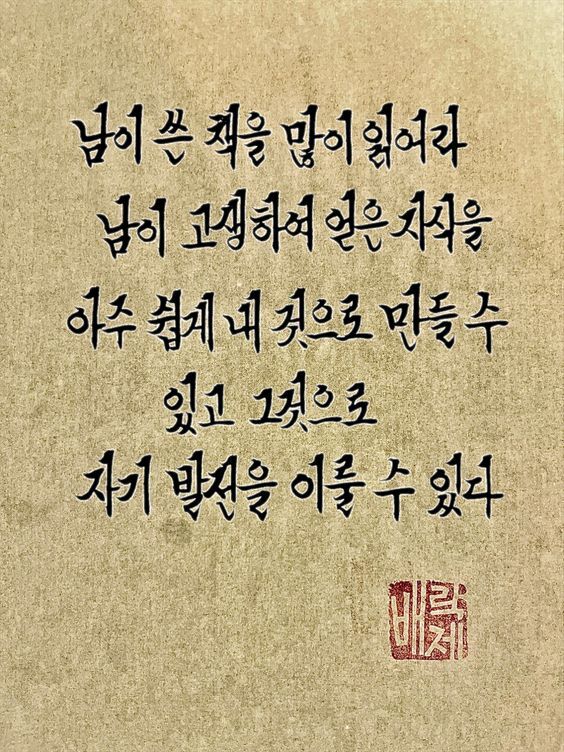 남이 쓴 책을 많이 읽어라
남이 고생하여 얻은 지식을
아주 쉽게 내 것으로 만들 수
있고 그것으로
자기 발전을 이룰 수 있다
배락제